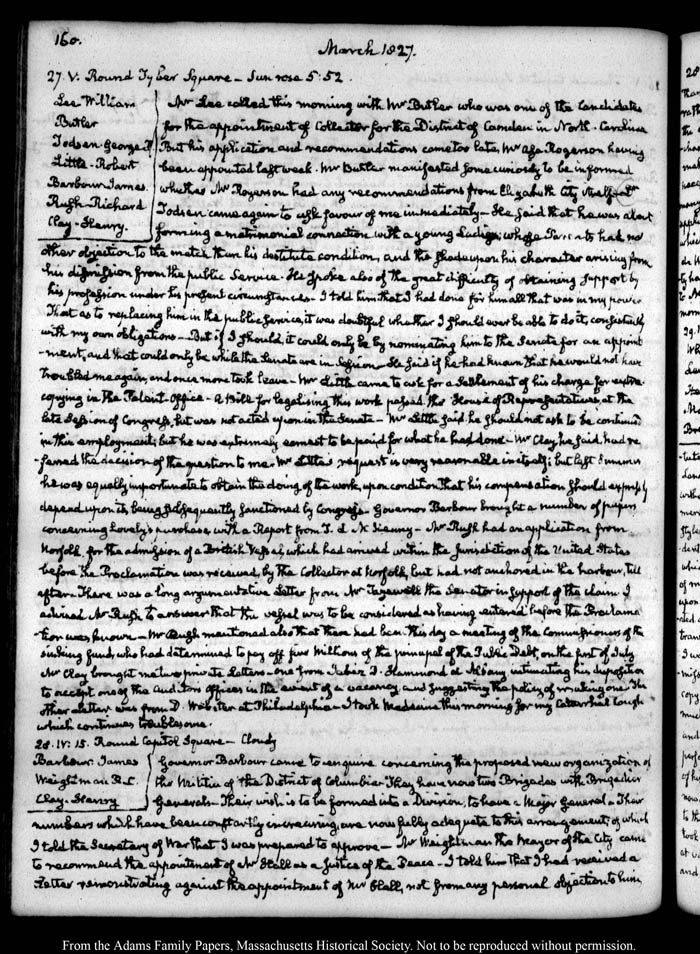 160.
March 1827.
27. V: Round Tyber Square — Sun rose 5:52.
Lee William
Butler
Todsen George P
Little Robert
Barbour James
Rush Richard
Clay Henry.
Mr Lee called this morning with Mr Butler who was one of the Candidates
for the appointment of Collector for the District of Camden in North-Carolina
But his application and recommendations came too late, Mr Asa Rogerson having
been appointed last week. Mr Butler manifested some curiosity to be informed
whether Mr Rogerson had any recommendations from Elizabeth City itself.
Todsen came again to ask favour of me immediately — He said that he was about
forming a matrimonial connection with a young Lady; whose Parents had no
other objection to the match than his destitute condition, and the shade upon his character arising from
his dismission from the public Service. He spoke also of the great difficulty of obtaining support by
his profession under his present circumstances. I told him that I had done for him all that was in my power
That as to replacing him in the public service, it was doubtful whether I should ever be able to do it, consistently
with my own obligations — But if I should, it could only be by nominating him to the Senate for an appoint
-ment, and that could only be while the Senate are in Session — He said if he had known that he would not have
troubled me again, and once more took leave — Mr Little came to ask for a settlement of his charge for
copying in the Patent Office — A Bill for legalising this work passed the House of Representatives, at the
late Session of Congress, but was not acted upon in the Senate — Mr Little said he should not ask to be continued
in this employment; but he was extremely earnest to be paid for what he had done — Mr Clay he said had re
-ferred the decision of the question to me. Mr Little's request is very reasonable in itself; but last Summer
he was equally importunate to obtain the doing of the work, upon condition that his compensation should expressly
depend upon its being subsequently sanctioned by Congress — Governor Barbour brought a number of papers
concerning Lovely's purchase, with a Report from T. L. McKenney — Mr Rush had an application from
Norfolk, for the admission of a British Vessel, which had arrived within the Jurisdiction of the United States
before the Proclamation was received, by the Collector at Norfolk, but had not anchored in the harbour, till
after. There was a long argumentative Letter from Mr Tazewell the Senator in support of the claim. I
advised Mr Rush to answer that the vessel was to be considered as having entered before the Proclama
-tion was known — Mr Rush mentioned also that there had been this day a meeting of the Commissioners of the
sinking fund, who had determined to pay off five Millions of the principal of the Public Debt, on the first of July
Mr Clay brought me two private Letters — one from Jabez D. Hammond at Albany intimating his disposition
to accept one of the Auditors offices in the event of a vacancy, and suggesting the policy of making one The
other Letter was from D. Webster at Philadelphia — I took Medicine this morning for my Catarrhal Cough
which continues troublesome.
28. IV: 15. Round Capitol Square — Cloudy
Barbour James
Weightman R. C.
Clay Henry
Governor Barbour came to enquire concerning the proposed new organization of
the Militia of the District of Columbia. They have now two Brigades with Brigadier
Generals — Their wish is to be formed into a Division, to have a Major General — Their
numbers which have been constantly increasing, are now fully adequate to this arrangement; of which
I told the Secretary of War that I was prepared to approve — Mr Weightman the Mayor of the City came
to recommend the appointment of Mr Hall as a Justice of the Peace — I told him that I had received a
Letter remonstrating against the appointment of Mr Hall, not from any personal objection to him
From the Adams Family Papers, Massachusetts Historical Society. Not to be reproduced without permission.